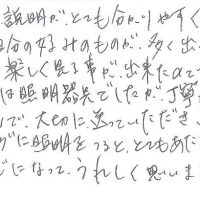 説明が、とても分かりやすく
分の好みのものが、多く出
楽しく見る事が、出来たので
は照明器具でしたが、丁寧
で、大切に、送っていただき
ぐに照明をつると、とてもあた
になって、うれしく思いま